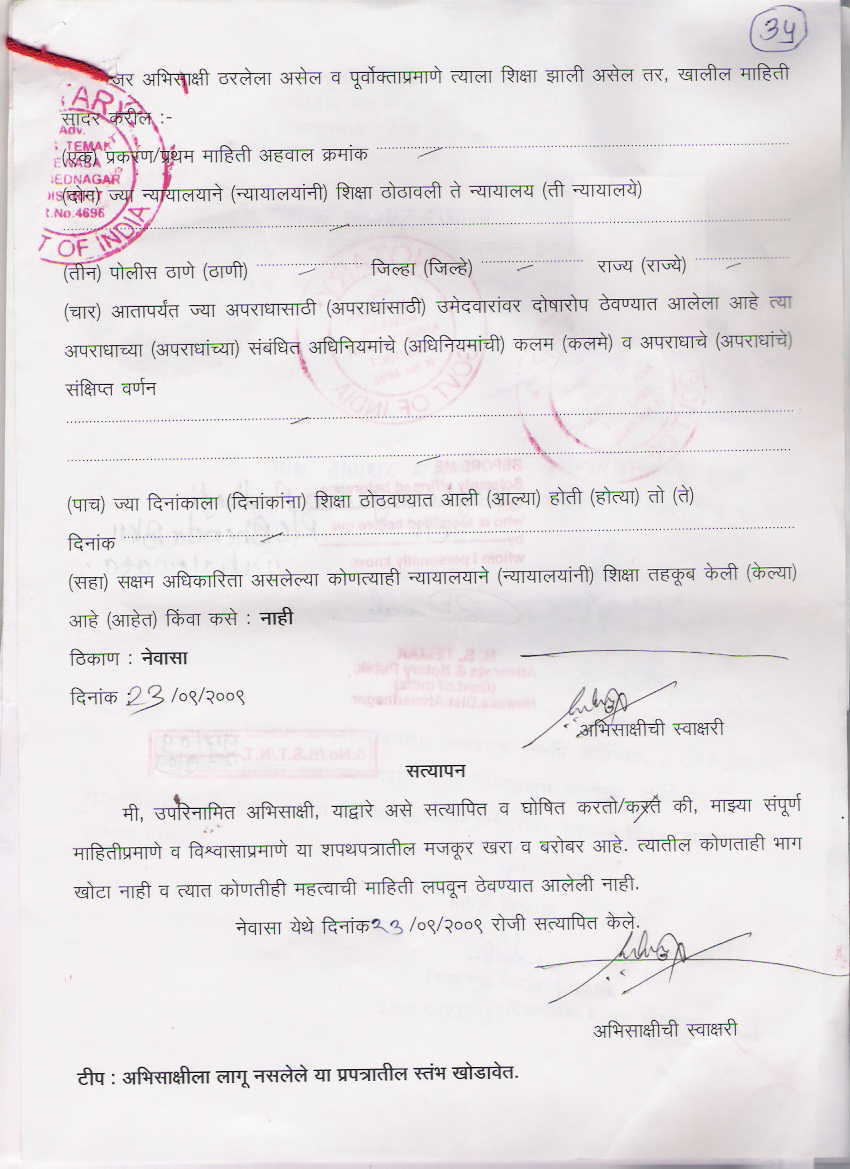 34
जर अभिसाक्षी ठरलेला असेल व पूर्वोक्ताप्रमाणे त्याला शिक्षा झाली असेल तर, खालील माहिती
सादर करील :-
ARY
Adv.
TEMAK
EWASA
EDNAGAR
DIST
t.No.4696
T OF INDIA
(एक) प्रकरण/प्रथम माहिती अहवाल क्रमांक
(दोन) ज्या न्यायालयाने (न्यायालयांनी) शिक्षा ठोठावली ते न्यायालय (ती न्यायालये)
(तीन) पोलीस ठाणे (ठाणी) जिल्हा (जिल्हे) राज्य (राज्ये)
(चार) आतापर्यंत ज्या अपराधासाठी (अपराधांसाठी) उमेदवारांवर दोषारोप ठेवण्यात आलेला आहे त्या
अपराधाच्या (अपराधांच्या) संबंधित अधिनियमांचे (अधिनियमांची) कलम (कलमे) व अपराधाचे (अपराधांचे)
संक्षिप्त वर्णन
(पाच) ज्या दिनांकाला (दिनांकांना) शिक्षा ठोठवण्यात आली (आल्या) होती (होत्या) तो (ते)
दिनांक
(सहा) सक्षम अधिकारिता असलेल्या कोणत्याही न्यायालयाने (न्यायालयांनी) शिक्षा तहकूब केली (केल्या)
आहे (आहेत) किंवा कसे : नाही
ठिकाण : नेवासा
दिनांक : 23 /०९/२००९
अभिसाक्षीची स्वाक्षरी
सत्यापन
मी, उपरिनामित अभिसाक्षी, याद्वारे असे सत्यापित व घोषित करतो/करते की, माझ्या संपूर्ण
माहितीप्रमाणे व विश्वासाप्रमाणे या शपथपत्रातील मजकूर खरा व बरोबर आहे. त्यातील कोणताही भाग
खोटा नाही व त्यात कोणतीही महत्वाची माहिती लपवून ठेवण्यात आलेली नाही.
नेवासा येथे दिनांक २3 /०९/२००९ रोजी सत्यापित केले.
अभिसाक्षीची स्वाक्षरी
टीप : अभिसाक्षीला लागू नसलेले या प्रपत्रातील स्तंभ खोडावेत.